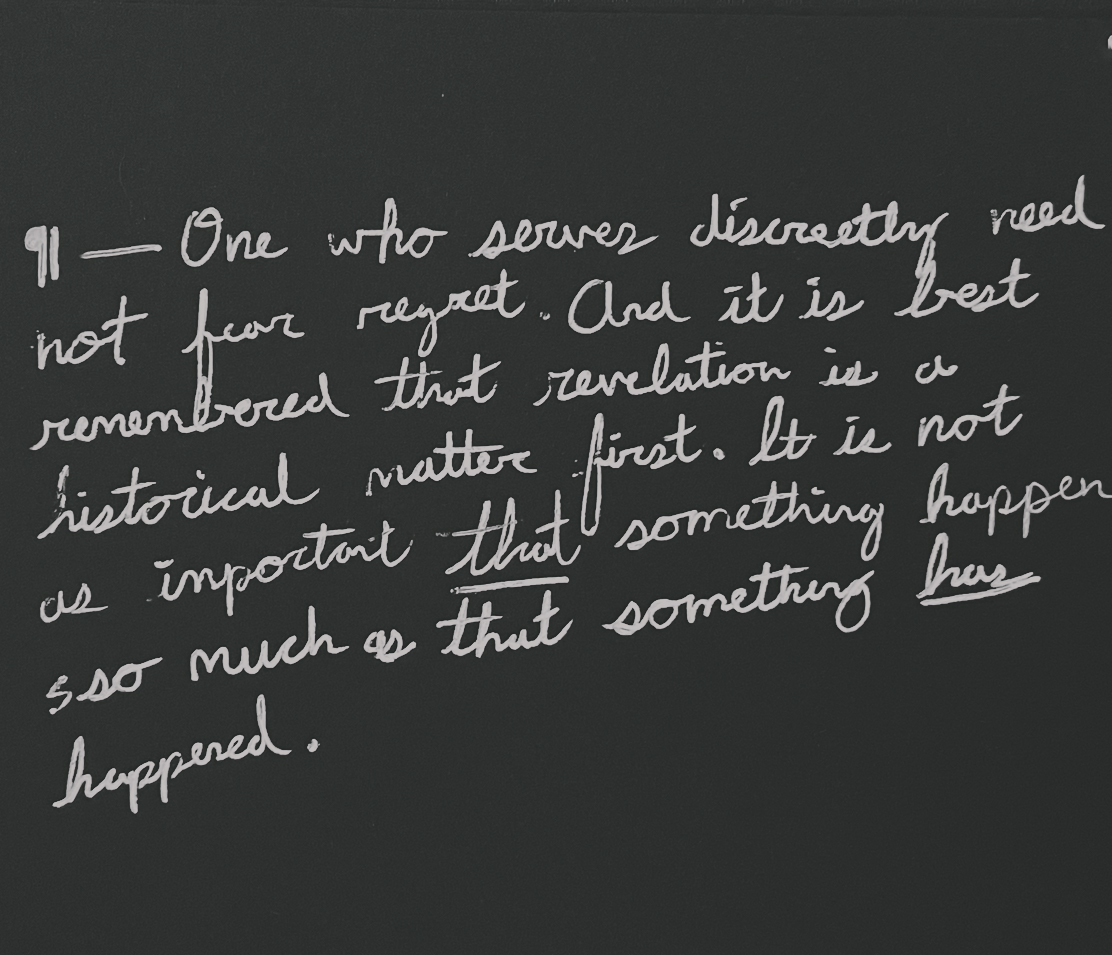 ¶ — One who serves discreetly need
not fear regret. And it is best
remembered that revelation is a
historical matter first. It is not
as important that something happen
sso much as that something has
happened.